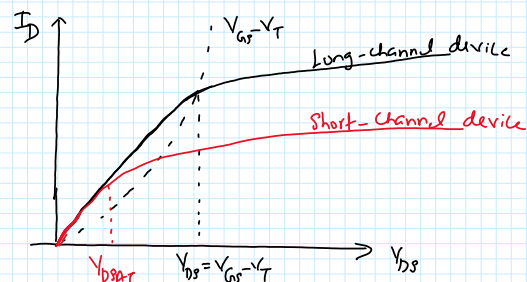 I_D
V_GS-V_T
Long-channel device
Short-Channel device
V_DSAT
V_DS=V_GS-V_T
V_DS